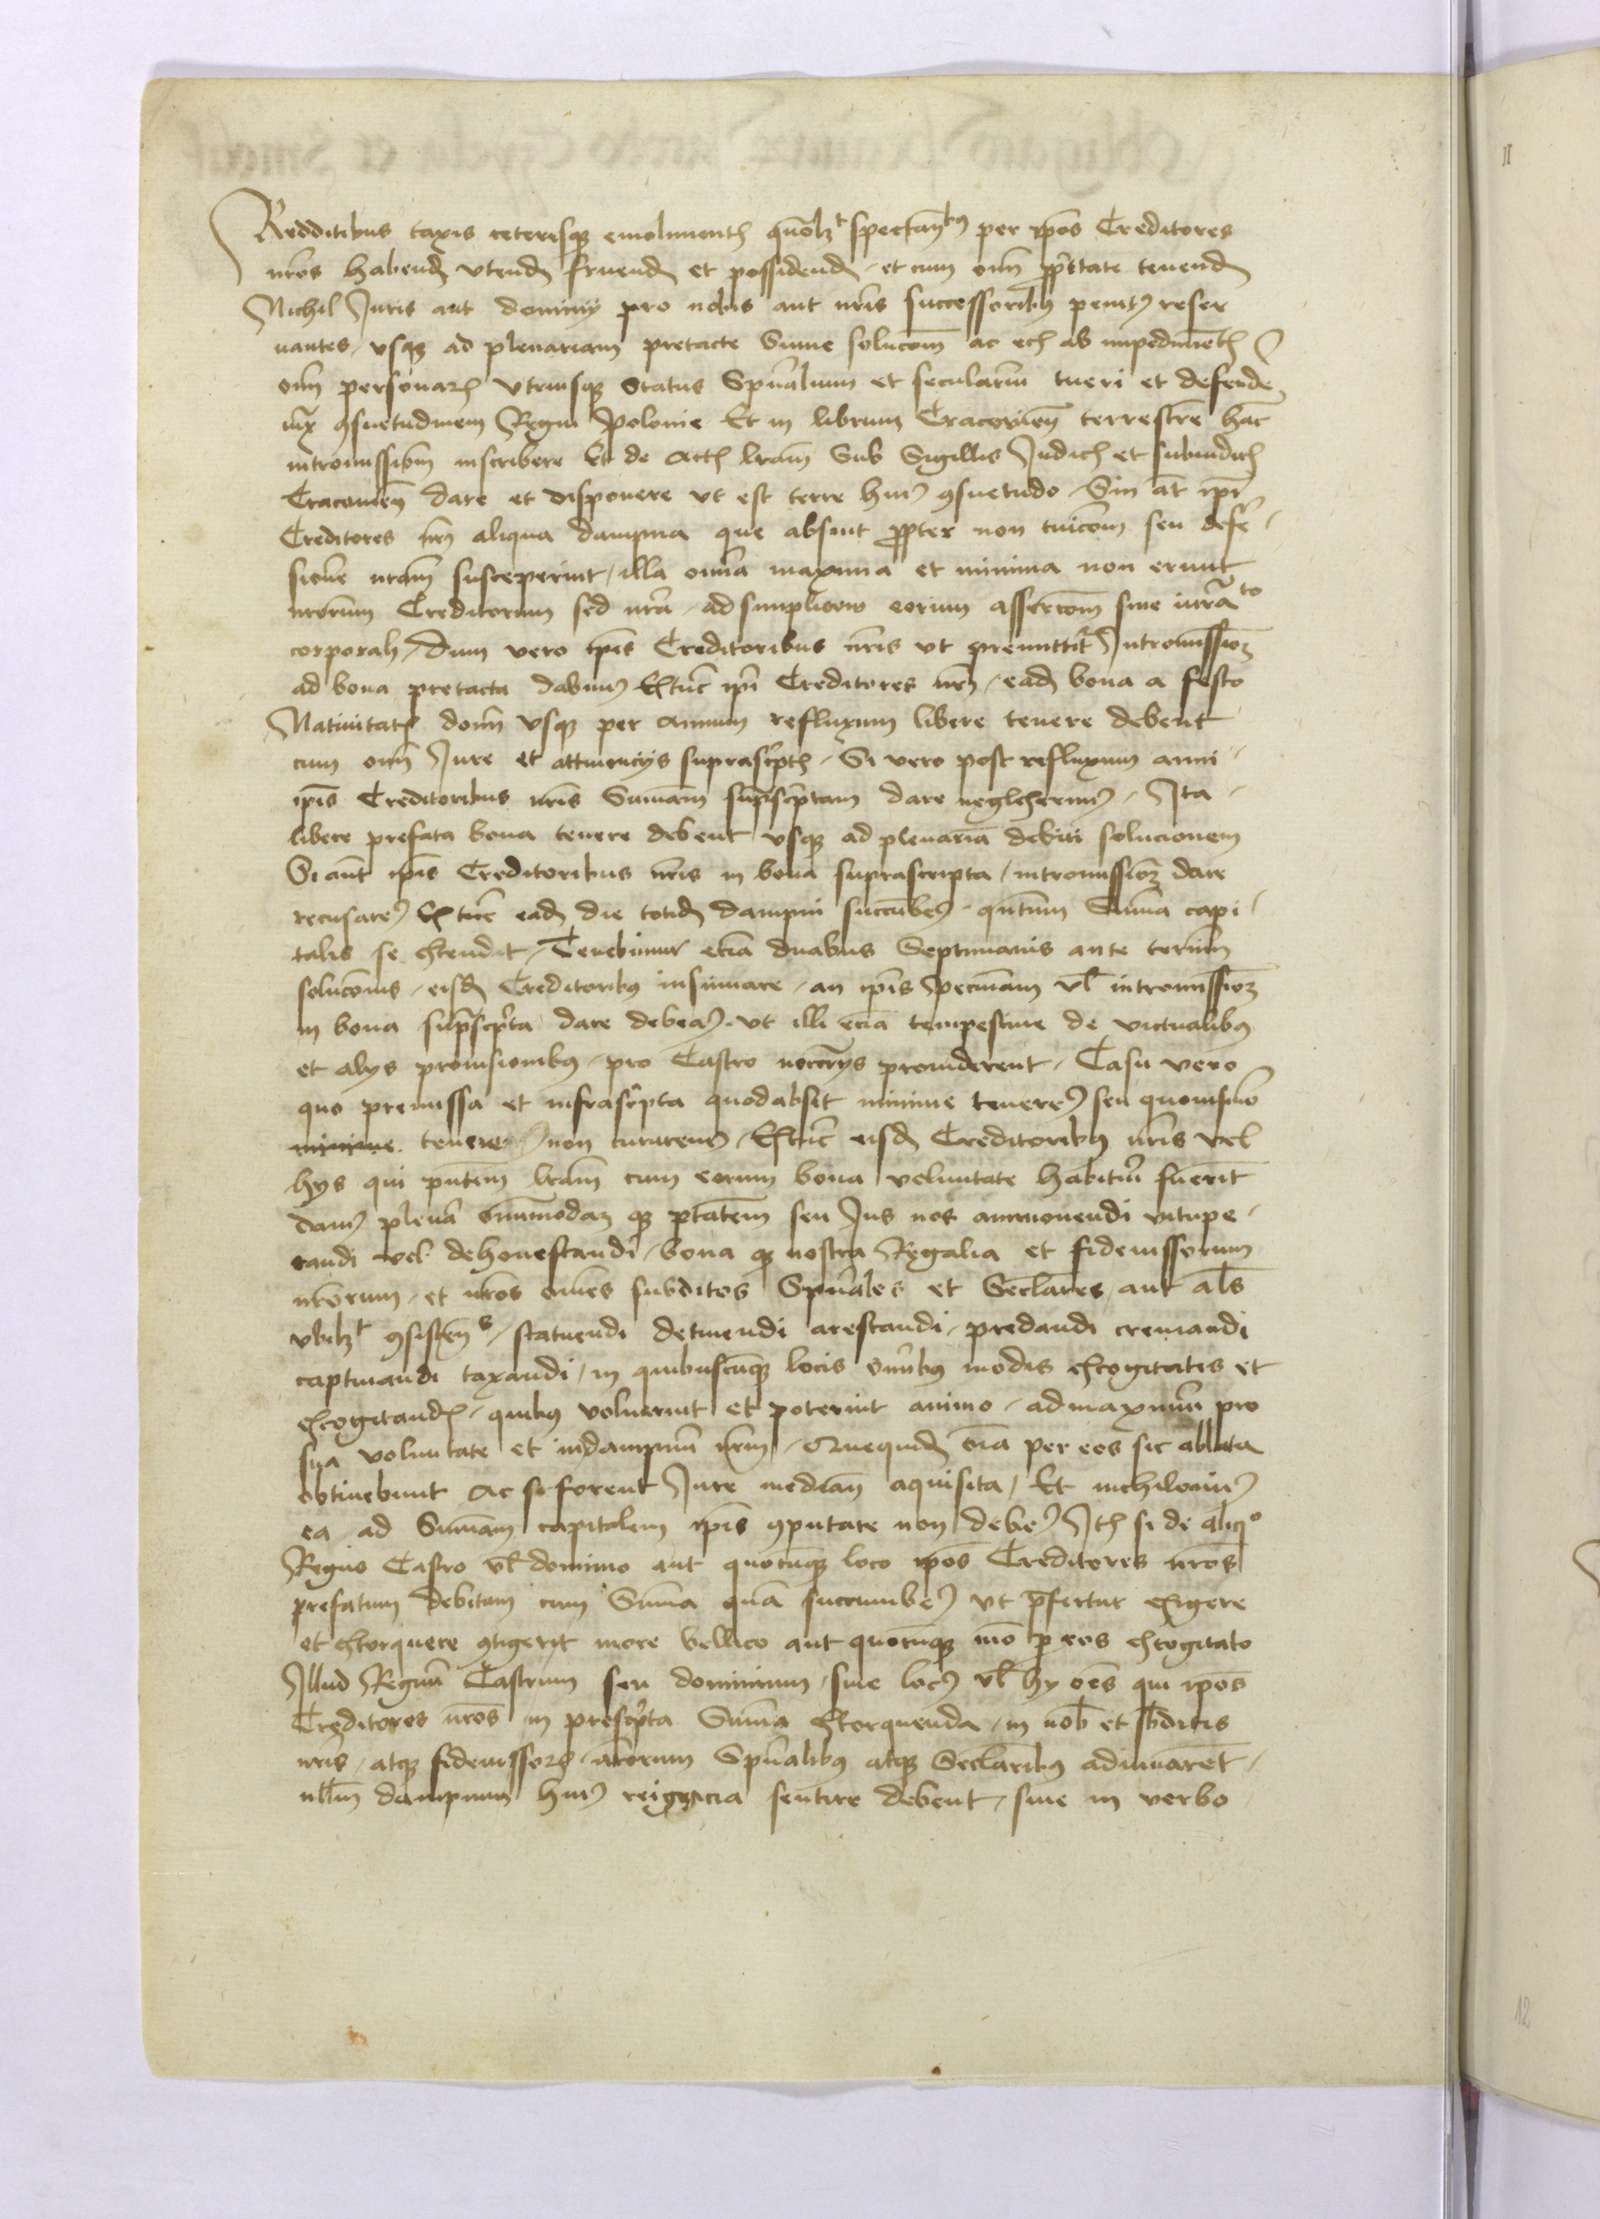 Redditibus taxis ceterisq emolimentis quolzt spectantibus per ipos Creditores
nros habend vtend fruend et possidend et cum omi pprietate tenend
Nichil Juris aut dominij pro nobis aut nris successoribus penitus reser
uantes vsq ad plenariam pretacte Sume solucom ac ecia ab impedimetis
oim personarum vtriusq Status Spualium et secularium tueri et defende
iux consuetudinem Regni Polonie Et in librum Cracouien terrestrem hanc
intromissionem inscribere Et de actis lram Sub Sigillis Judicis et subiudicis
Cracouien dare et disponere vt est terre huius consuetudo Sin at ipi
Creditores nri aliqua dampna que absint ppter non tuicom seu defe
sione nram susceperint illa omia maxima et minima non erunt
nrorum Creditorum sed nra ad simplicem eorum assercom sine iurato
corporali Dum vero ipis Creditoribus nris vt premittitur Intromissionem
ad bona pretacta dabimus Extunc ipi Creditores nri eadem bona a festo
Natiuitatis domi vsq per annum refluxum libere tenere debent
cum omi Jure et attinencijs suprascriptis Si vero post refluxum anni
ipis Creditoribus nris Sumam supscriptam dare neglexerimus Ita
libere prefata bona tenere debent vsq ad plenaria debiti solucionem
Si aut ipis Creditoribus nris in bona suprascripta intromissionem dare
recusaremus Extunc eadem die totidem dampni succumbemus quntum Suma capi
talis se extendit Tenebimur ecia duabus Septimanis ante terminum
solucois eisdem Creditoribus insinuare an ipis pecuniam vl intromissionem
in bona supscripta dare debeamus vt illi ecia tempestiue de victualibus
et alijs prouisionibus pro Castro necessarijs prouiderent Casu vero
quo premissa et infrascripta quodabsit minime teneremus seu quouismodo
minime teneremus non curaremus Extunc eisdem Creditoribus nris vel
hijs qui pntem lram cum eorum bona voluntate habituri fuerint
damus plenam omnimodam q ptatem seu Jus nos ammonendi vitupe
randi vel dehonestandi bona q nostra Regalia et fideiussorum
nrorum et nros omes subditos Spuales et Seclares aut als
vbilzt consistens statuendi detinendi arestandi predandi cremandi
captiuandi taxandi in quibuscunq locis omibus modis excogitatis et
excogitandis quibus voluerint et poterint animo ad maximum pro
sua voluntate et in dampnum nrum Quequidem oia per eos sic ablata
obtinebunt ac si forent Jure median aquisita Et nichilominus
ea ad Sumam capitalem ipis computare non debemus Item si de aliquo
Regno Castro vl dominio aut quocunq loco ipos Creditores nros
prefatum debitum cum Suma qua succumbemus vt pfertur exigere
et extorquere contigerit more bellico aut quocunq mo p eos excogitato
Illud Regnum Castrum seu dominium siue locus vl hij oes qui ipos
Creditores nros in prescripta Suma extorquenda in nob et subditis
nris atq fideiussoribus nrorum Spualibus atq Seclaribus adiuuarent
nullum dampnum huius rei gracia sentire debent siue in verbo
II
12